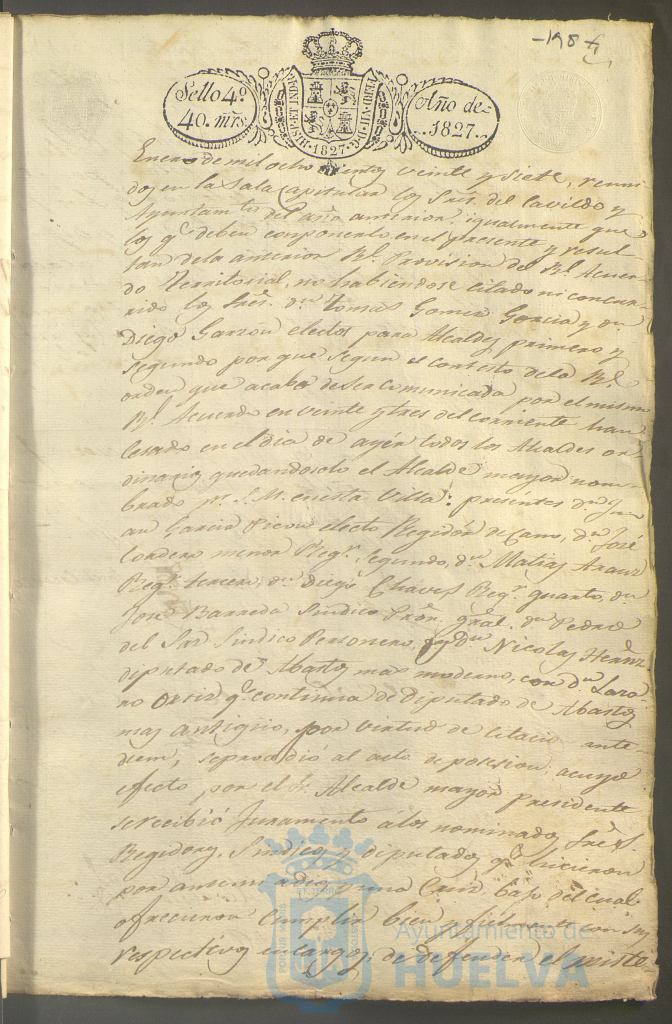 198
Sello 4º
40. mrs.
HISP. ET IND. R.
FERD. VII. D. G.
1827
Año de
1827.
Enero de mil ocho cientos veinte y siete, reuni
dos en la Sala capitular los Sres. del Cavildo y
Ayuntamto. del año anterior, igualmente que
los qe. deben componerlo en el presente y resul
tan dela anterior Rl. Provision del Rl. Acuer
do Territorial, no habiendose citado ni concur
rido los Sres. dn. Tomas Gomez Garcia y dn.
Diego Garzon electos para Alcaldes primero y
segundo por que segun el contesto dela Rl.
orden que acaba deser comunicada por el mismo
Rl. Acuerdo en veinte y tres del corriente han
cesado en el dia de ayer todos los Alcaldes or
dinarios, quedando solo el Alcalde mayor nom
brado pr. S. M. en esta Villa: presentes dn. Ju
an Garcia Picon electo Regidor de Cano, dn. José
Cordero menor Regr. segundo, dn. Matias Arauz
Regr. tercero, dn. Diego Chaves Regr. quarto, dn.
José Barreda Sindico Pror. gral. dn. Pedro
del Sar Sindico Personero, y dn. Nicolas Hernz.
diputado de Abastos mas moderno, con dn. Laza
ro Ortiz qe. continua de Diputado de Abastos
mas antiguo, por virtud de citacion ante
diem, se procedió al acto de posesion, acuyo
efecto, por el Sr. Alcalde mayor presidente
se recibió Juramento álos nominados Sres.
Regidores, Sindicos y diputados qe. hicieron
por ante mi á dios y una Cruz bajo del cual
ofrecieron cumplir bien y fielmente con sus
respectivos encargos, de defender el misté
Ayuntamiento de
HUELVA